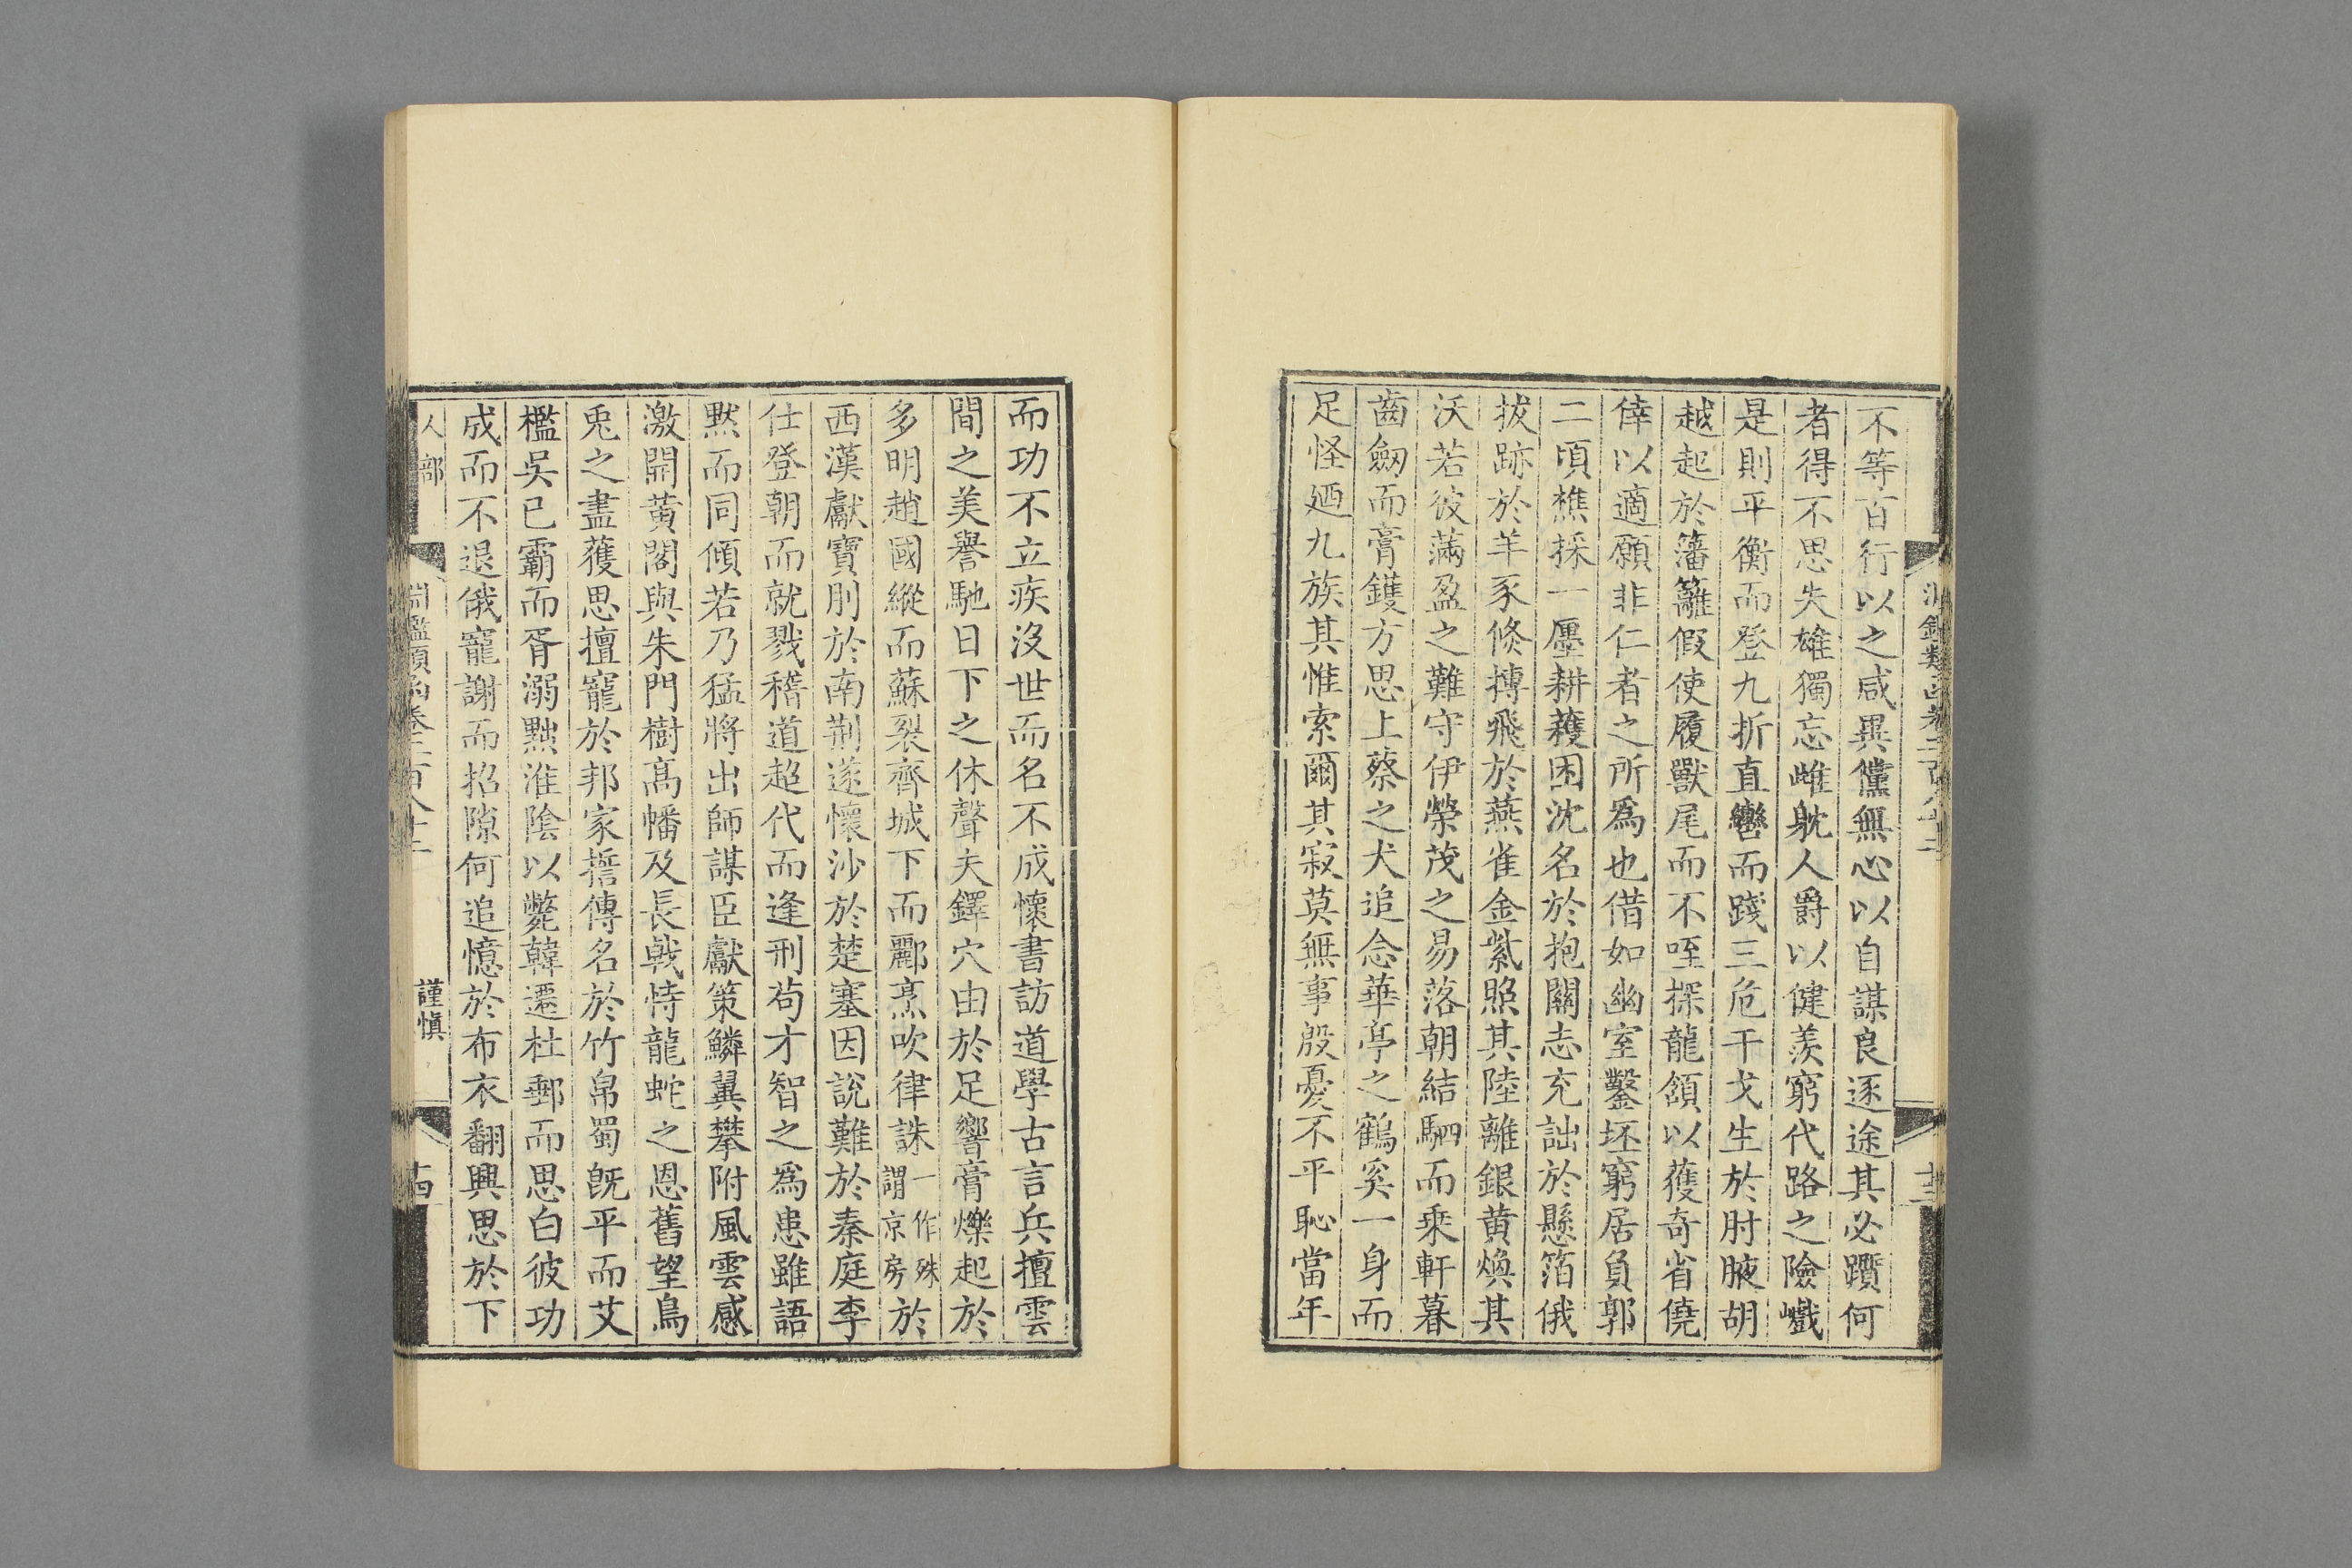 不等百行以之咸異儻無心以自謀良逐途其必躓何
者得不思失雄獨忘雌躭人爵以健羨窮代路之險巇
是則平衡而登九折直轡而踐三危干戈生於肘腋胡
越起於籓籬假使履獸尾而不咥探龍頷以獲奇省僥
倖以適願非仁者之所爲也借如幽室鑿坯窮居負郭
二頃樵採一廛耕穫困沈名於抱關志充詘於懸箔俄
拔跡於羊豕倏摶飛於燕雀金紫照其陸離銀黄煥其
沃若彼滿盈之難守伊榮茂之易落朝結駟而乘軒暮
齒劒而膏鑊方思上蔡之犬追念華亭之鶴奚一身而
足怪廼九族其惟索爾其寂莫無事殷憂不平恥當年
而功不立疾没世而名不成懷書訪道學古言兵擅雲
間之美譽馳日下之休聲夫鐸穴由於足響膏爍起於
多明趙國縱而蘇裂齊城下而酈烹吹律誅一作殊謂京房於
西漢獻寶刖於南荆遂懷沙於楚塞因說難於秦庭李
仕登朝而就戮稽道超代而逢刑茍才智之爲患雖語
黙而同傾若乃猛將出師謀臣獻策鱗翼攀附風雲感
激開黄閣與朱門樹高幡及長戟恃龍蛇之恩舊望鳥
兎之盡獲思擅寵於邦家擔傳名於竹帛蜀既平而艾
檻吳已霸而胥溺黥淮陰以斃韓遷杜郵而思白彼功
成而不退俄寵謝而招隙何追憶於布衣翻興思於下
人部
淵鑑類函卷二百八十二
謹愼
十四